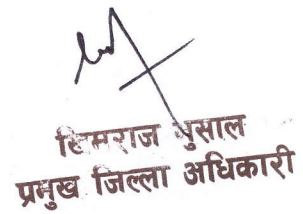 हिमराज भुसाल
प्रमुख जिल्ला अधिकारी